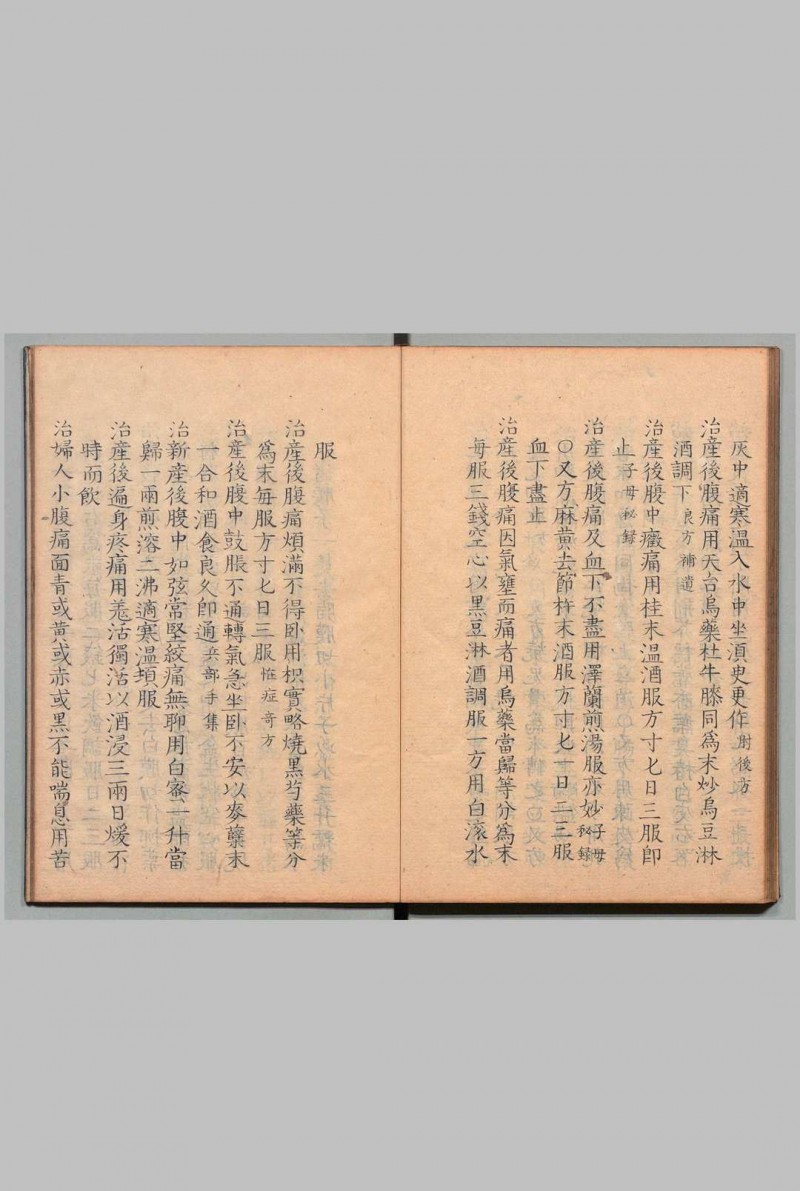 灰中適寒温入水中坐湏史更作肘後方
治産後腹痛用天台烏藥杜牛膝同爲末炒烏豆淋
酒調下良方補遺
治産後腹中癥痛用桂末温酒服方寸七日三服卽
止子母秘録
治産後腹痛及血下不盡用澤蘭煎湯服亦妙子母秘録
○又方麻黄去節杵末酒服方寸七一日二三服
血下盡止
治産後腹痛因氣壅而痛者用烏藥當歸等分爲末
每服三錢空心以黒豆淋酒調服一方用白滚水
服
治産後腹痛煩滿不得卧用枳實略燒黒芍藥等分
爲末每服方寸七日三服恠症竒方
治産後腹中鼓脹不通轉氣急坐卧不安以麥蘗末
一合和酒食良久卽通兵部手集
治新産後腹中如弦常堅絞痛無聊用白蜜一升當
歸一兩煎溶二沸適寒温頓服
治産後遍身疼痛用羗活獨活以酒浸三兩日煖不
時而飲
治婦人小腹痛面青或黄或赤或黒不能喘息用苦